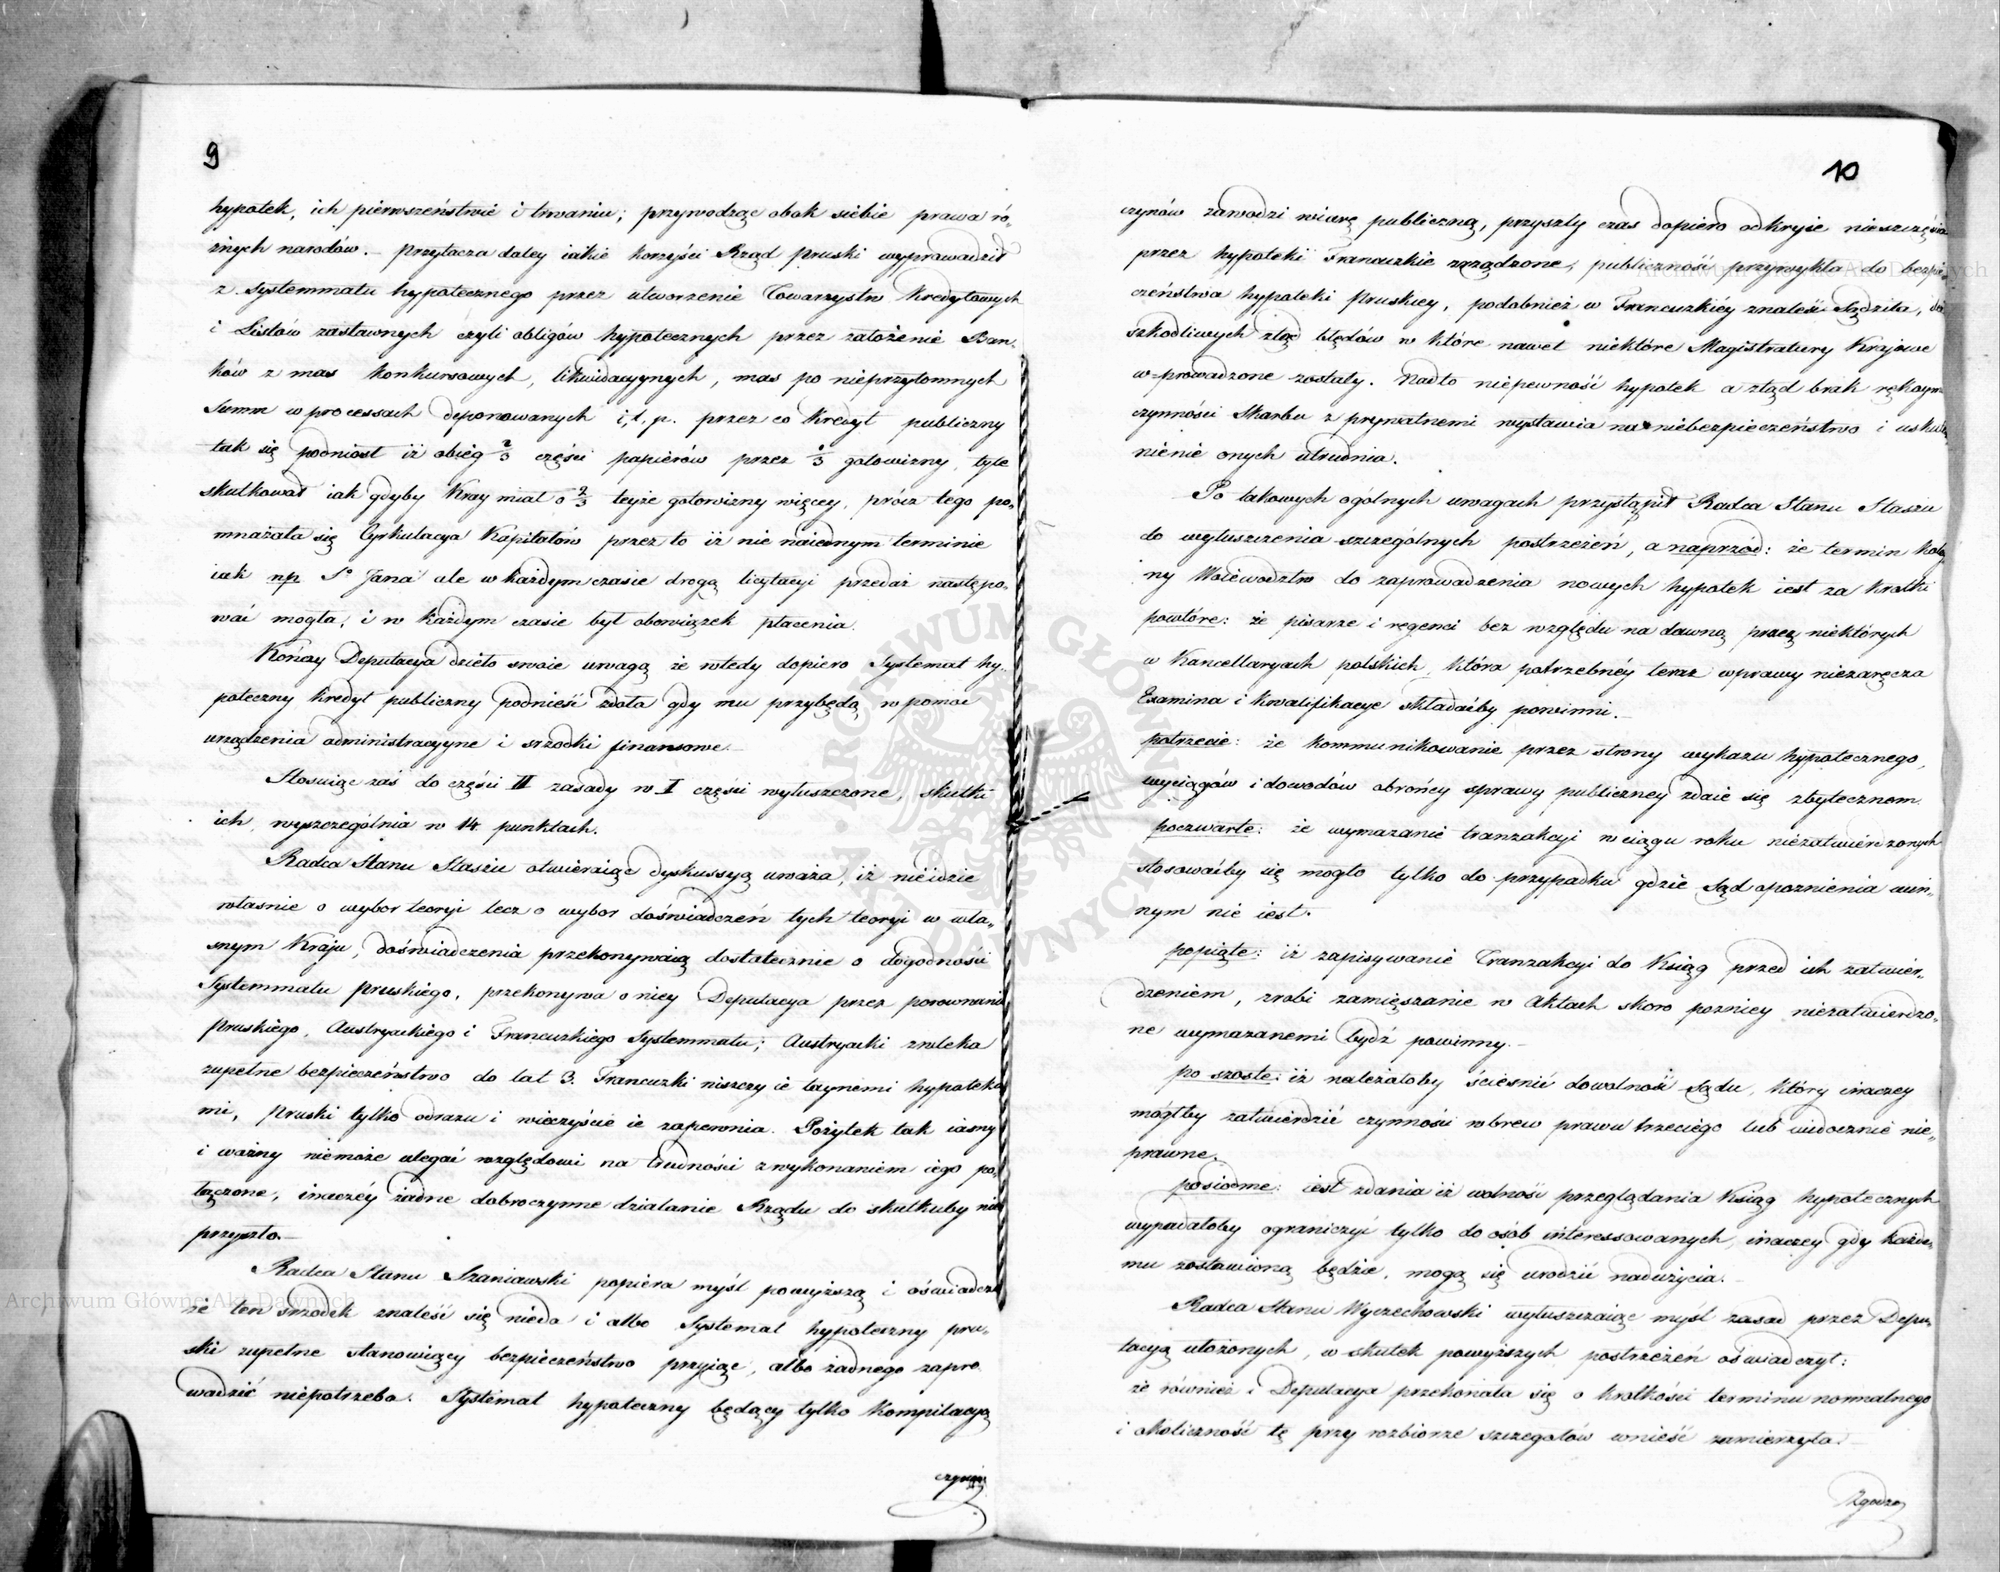 9
hypotek, ich pierwszeństwie i trwaniu; przywodząc obok siebie prawa ró-
żnych narodów. – Przytacza daley iakie korzyści Rząd pruski wyprowadził
z Systemmatu hypotecznego przez utworzenie Towarzystw Kredytowych
i Listów zastawnych czyli obligów hypotecznych przez założenie Ban-
ków z mas konkursowych, likwidacyynych, mas po nieprzytomnych
Summ w processach deponowanych i, t. p. przez co Kredyt publiczny
tak się podniósł iż obieg 2/3 części papierów przez 1/3 gotowizny, tyle
skutkował iak gdyby Kray miał o 2/3 teyże gotowizny więcey, prócz tego po-
mnażała się Cyrkulacya Kapitałów przez to iż nie na iednym terminie
iak np S° Jana ale w każdym czasie drogą licytacyi przedaż następo-
wać mogła, i w każdym czasie był obowiązek płacenia.
Kończy Deputacya dzieło swoie uwagą że wtedy dopiero Systemat hy-
poteczny kredyt publiczny podnieść zdoła gdy mu przybędą w pomoc
urządzenia administracyyne i srzodki finansowe. –
Stosuiąc zaś do części II zasady w I części wyłuszczone, skutki
ich wyszczególnia w 14 punktach.
Radca Stanu Staszic otwieraiąc dyskussyą uważa, iż nie idzie
własnie o wybor teoryi lecz o wybor doświadczeń tych teoryi w wła-
snym Kraju, doświadczenia przekonywaią dostatecznie o dogodności
Systemmatu pruskiego, przekonywa o niey Deputacya przez porownanie
pruskiego, Austryackiego i Francuzkiego Systemmatu; Austryacki zwleka
zupełne bezpieczeństwo do lat 3. Francuzki niszczy ie taynemi hypoteka
mi, pruski tylko odrazu i wieczyście ie zapewnia. Pożytek tak iasny
i ważny niemoże ulegać względowi na trudności z wykonaniem iego po-
łączone, inaczéy żadne dobroczynne działanie Rządu do skutkuby nie
przyszło. –
Radca Stanu Szaniawski popiera myśl powyższą i oświadcza
że ten srzodek znaleść się nieda i albo Systemat hypoteczny pru-
ski zupełne stanowiący bezpieczeństwo przyiąć, albo żadnego zapro
wadzić niepotrzeba. Systemat hypoteczny będący tylko Kompilacyą
czynów
10
czynów zawodzi wiarę publiczną, przyszły czas dopiero odkryie nieszczęścia
przez hypoteki Francuzkie zrządzone, publiczność przywykła do bezpie-
czeństwa hypoteki Pruskiey, podobnież w Francuzkiéy znaleść sądziła, do
szkodliwych ztąd błędów w które nawet niektóre Magistratury Krajowe
w-prowadzone zostały. Nadto niepewność hypotek a ztąd brak rękoym
czynności Skarbu z prywatnemi wystawia na niebezpieczeństwo i uskute
nienie onych utrudnia.
Po takowych ogólnych uwagach przystąpił Radca Stanu Staszic
do wyłuszczenia szczególnych postrzeżeń, a naprzód: że termin kole
ny Woiewodztw do zaprowadzenia nowych hypotek iest za krotki
powtóre: że pisarze i regenci bez względu na dawną pracę niektórych
w Kancellaryach polskich, która potrzebnéy teraz wprawy niezaręcza
Examina i kwalifikacye składaćby powinni. –
potrzecie: że kommunikowanie przez strony wykazu hypotecznego,
wyciągów i dowodów obrońcy sprawy publiczney zdaie się zbytecznem
poczwarte: że wymazanie tranzakcyi w ciągu roku niezatwierdzonych
stosowaćby się mogło tylko do przypadku gdzie Sąd opoznienia win-
nym nie iest.
popiąte: iż zapisywanie Tranzakcyi do Xiąg przed ich zatwier-
dzeniem, zrobi zamięszanie w Aktach skoro pozniey niezatwierdzo-
ne wymazanemi bydź powinny. –
po szoste: iż należałoby ścieśnić dowolność Sądu, który inaczey
mógłby zatwierdzić czynności wbrew prawu trzeciego lub widocznie nie-
prawne.
posiodme: iest zdania iż wolność przeglądania Xiąg hypotecznych
wypadałoby ograniczyć tylko do osób interessowanych, inaczey gdy każde-
mu zostawioną będzie, mogą się urodzić nadużycia. –
Radca Stanu Wyczechowski wyłuszczaiąc myśl zasad przez Depu-
tacyą ułożonych, w skutek powyższych postrzeżeń oświadczył:
że również i Deputacya przekonała się o krotkości terminu normalnego
i okoliczność tę przy rozbiorze szczegołów wnieść zamierzyła. –
Zgodzo
Archiwum Główne Akt Dawnych